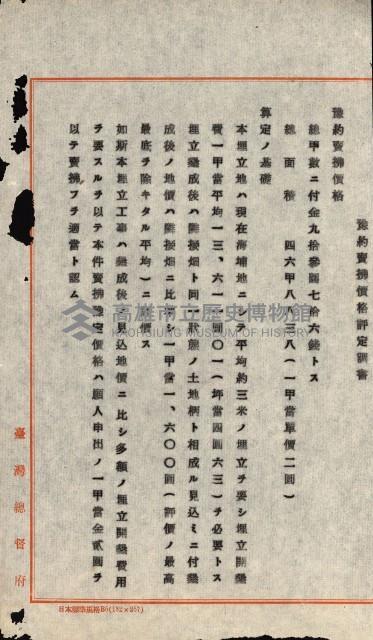 豫約賣拂價格評定調書
豫約賣拂價格
總甲數ニ付金九拾參圓七拾六錢トス
總面積　四六甲八八三八(一甲當單價二圓)
算定ノ基礎
本埋立地ハ現在海埔地ニシテ平均約三米ノ埋立ヲ要シ埋立開墾
費一甲當平均一三、六一一圓〇一(坪當四圓六三)ヲ必要トス
埋立墾成後ハ隣接畑ト同一狀態ノ土地柄ト相成ル見込ミニ付墾
成後ノ地價ハ隣接畑ニ比準シ一甲當一、六〇〇圓(評價ノ最高
最底ヲ除キタル平均)ニ評價ス
如斯本埋立工事ハ墾成後ノ見込地價ニ比シ多額ノ埋立開墾費用
ヲ要スルヲ以テ本件賣拂豫定價格ハ願人申出ノ一甲當金貳圓ヲ
以テ賣拂フヲ適當ト認ム
臺灣總督府
日本標準規格B5(182×257)
高雄市立歷史博物館
KAOHSIUNG MUSEUM OF HISTORY